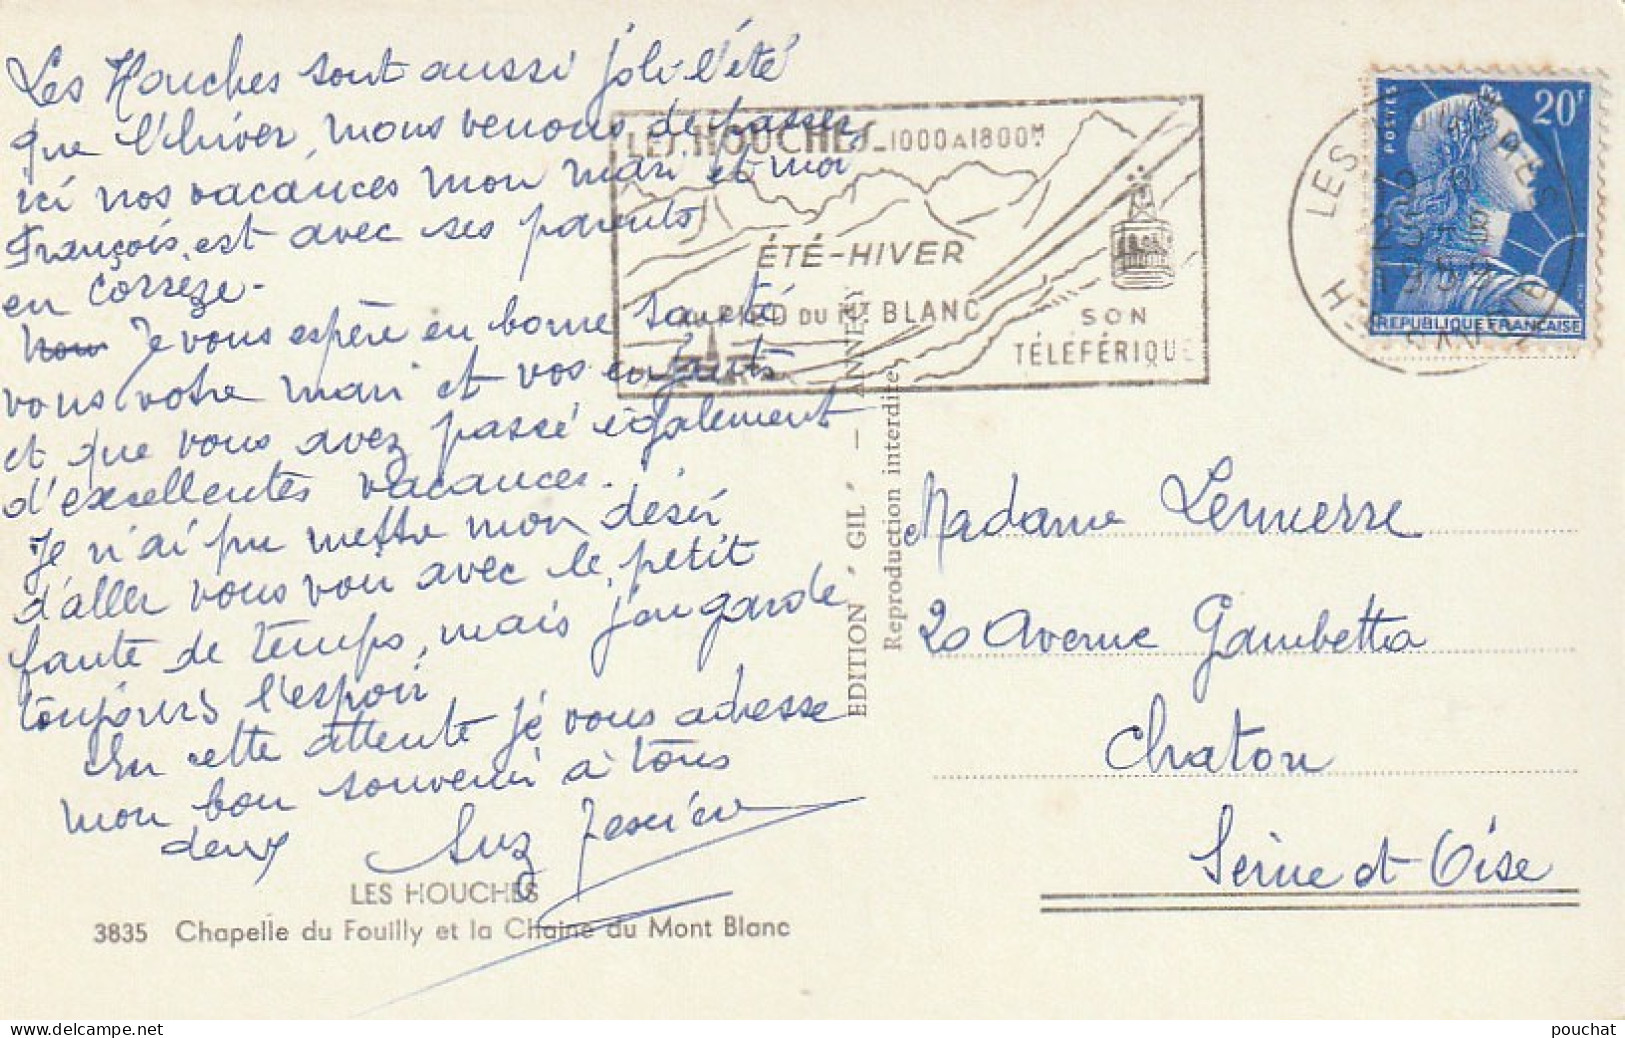 Les Houches sont aussi joli l'été
que l'hiver, nous venons de passer
ici nos vacances mon mari et moi
François est avec ses parents
en Corrèze.
Je vous espère en bonne santé
vous votre mari et vos enfants
et que vous avez passé également
d'excellentes vacances.
Je n'ai pu mettre mon désir
d'aller vous voir avec le petit
faute de temps, mais j'en garde
toujours l'espoir
En cette attente je vous adresse
mon bon souvenir à tous
deux
Suz
LES HOUCHES
3835 Chapelle du Fouilly et la Chaine du Mont Blanc
LES HOUCHES _ 1000 A 1800 M
ÉTÉ - HIVER
AU PIED DU MT BLANC
SON
TÉLÉFÉRIQUE
EDITION " GIL " — ANNECY
Reproduction interdite
POSTES
20F
REPUBLIQUE FRANÇAISE
LES
H-TE SAVOIE
Madame Lemerre
20 Avenue Gambetta
Chatou
Seine et Oise
delcampe.net
pouchat